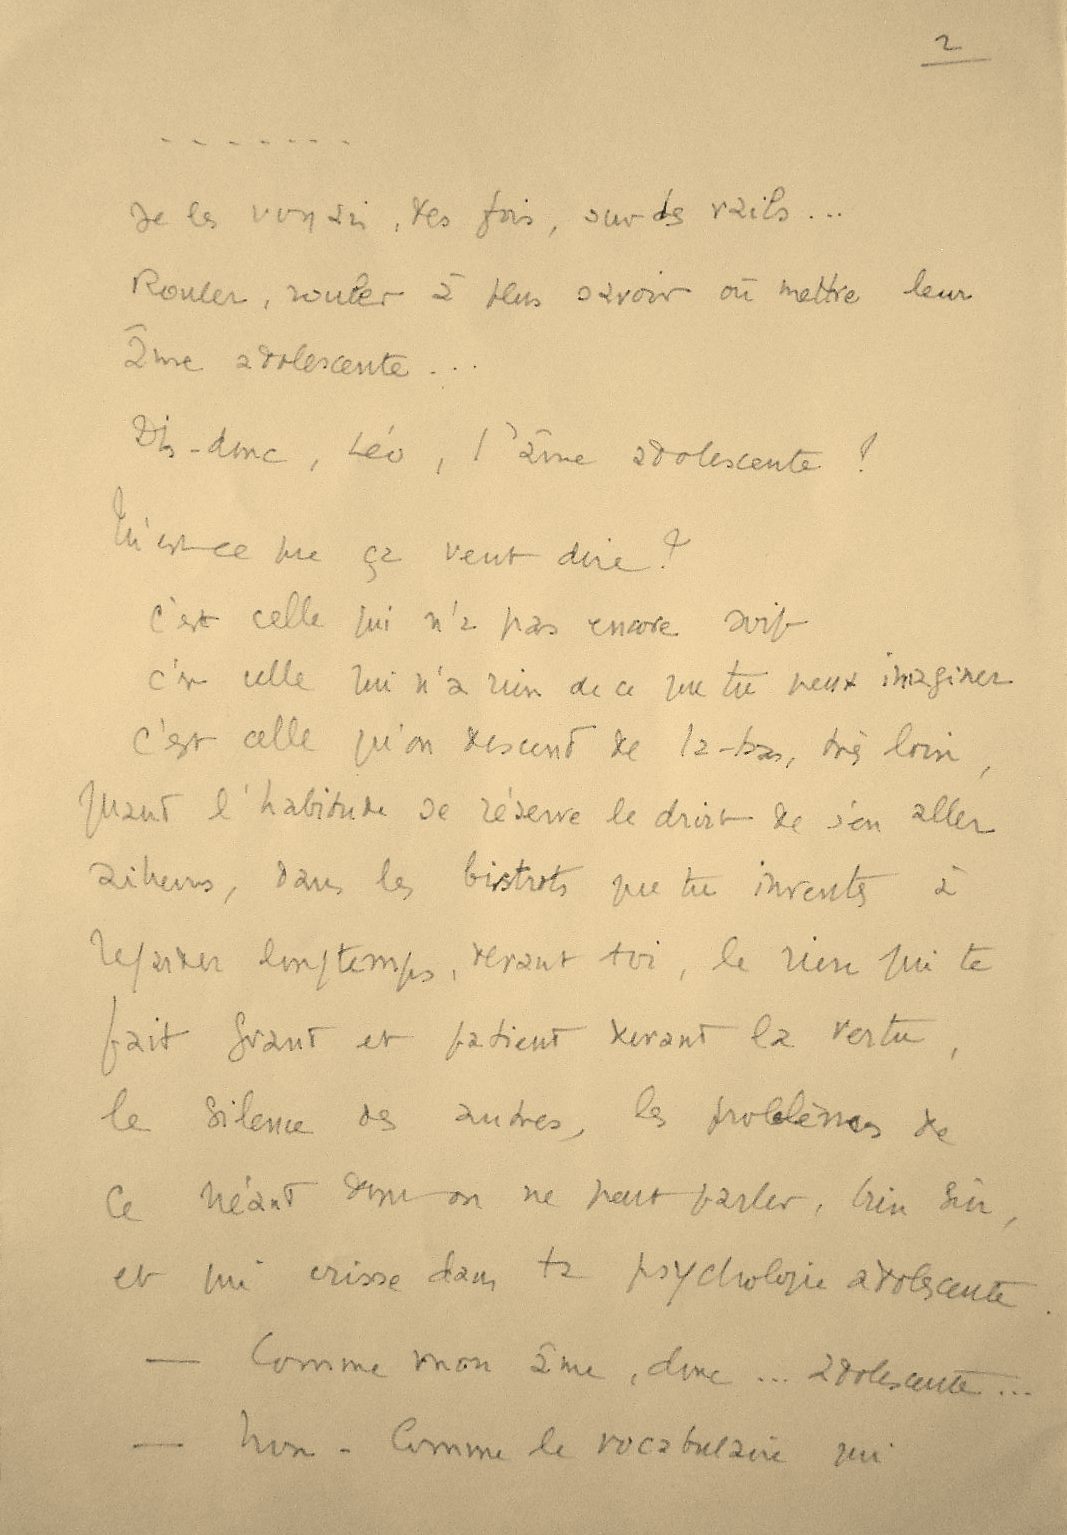 2
- - - - - - -
Je les voyais, des fois, sur des rails...
Rouler, rouler à plus savoir où mettre leur
âme adolescente...
Dis-donc, Léo, l'âme adolescente ?
Qu'est-ce que ça veut dire ?
C'est celle qui n'a pas encore soif
C'est celle qui n'a rien de ce que tu peux imaginer
C'est celle qu'on descend de là-bas, très loin,
quand l'habitude se réserve le droit de s'en aller
ailleurs, dans les bistrots que tu inventes à
regarder longtemps, devant toi, le rien qui te
fait grand et patient devant la vertu,
le silence des autres, les problèmes de
ce néant dont on ne peut parler, bien sûr,
et qui crisse dans ta psychologie adolescente.
— Comme mon âme, donc... adolescente...
— Non - Comme le vocabulaire qui